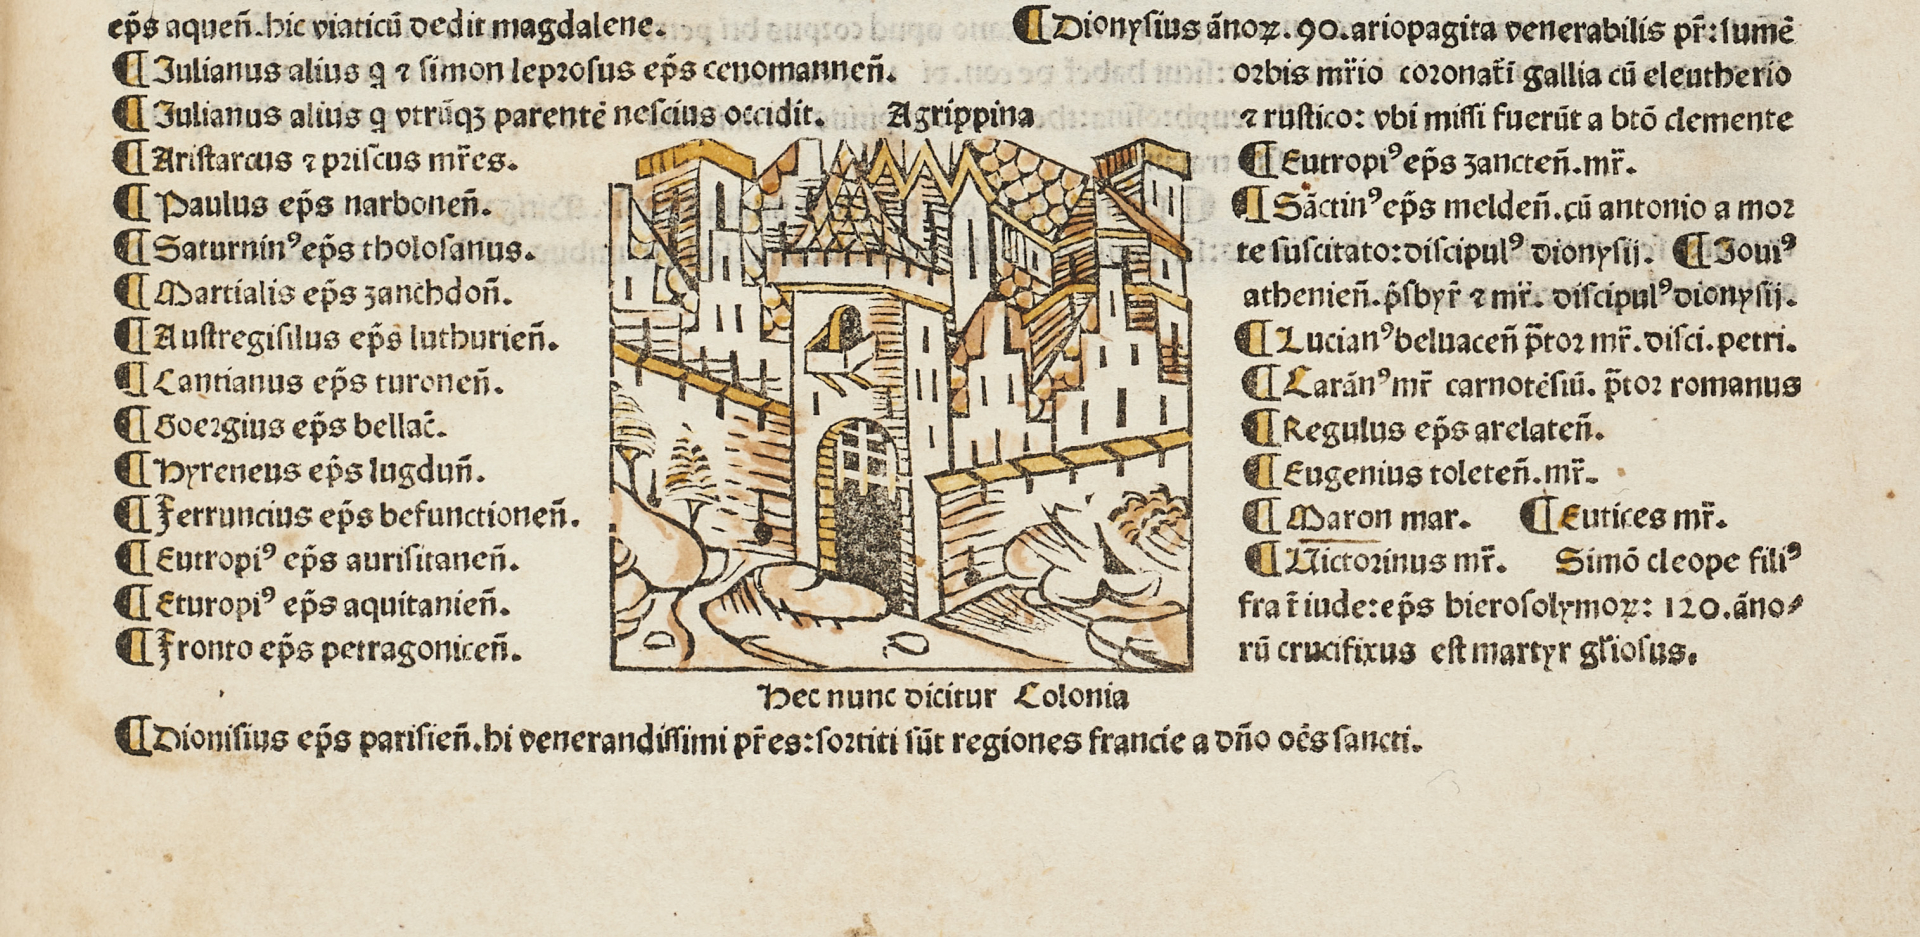 ep̄s aqueñ.hic viaticū dedit magdalene.
¶Julianus alius q ⁊ simon leprosus ep̄s cenomanneñ.
¶Julianus alius q vtrūqꝫ parentē nescius occidit.
Agrippina
¶Aristarcus ⁊ priscus mr̄es.
¶Paulus ep̄s narboneñ.
¶Saturninꝰ ep̄s tholosanus.
¶Martialis ep̄s zanchdoñ.
¶Austregisilus ep̄s luthurieñ.
¶Cantianus ep̄s turoneñ.
¶Goergius ep̄s bellac̄.
¶Hyreneus ep̄s lugduñ.
¶Ferruncius ep̄s befunctioneñ.
¶Eutropiꝰ ep̄s aurisitaneñ.
¶Eturopiꝰ ep̄s aquitanieñ.
¶Fronto ep̄s petragoniceñ.
¶Dionysius āno⁊ꝝ.90.ariopagita venerabilis pr̄:sumē
orbis mr̄io coronat̄i gallia cū eleutherio
⁊ rustico: vbi missi fuerūt a btō clemente
¶Eutropiꝰ ep̄s zancteñ.mr̄.
¶Sāctinꝰ ep̄s meldeñ.cū antonio a mor
te suscitato:discipulꝰ dionysij. ¶Jouiꝰ
athenieñ.p̄sbyr̄ ⁊ mr̄. discipulꝰ dionysij.
¶Lucianꝰ beluaceñ p̄tor mr̄.disci.petri.
¶Caránꝰ mr̄ carnotēsiū. p̄tor romanus
¶Regulus ep̄s arelateñ.
¶Eugenius toleteñ.mr̄.
¶Maron mar. ¶Eutices mr̄.
¶Victorinus mr̄. Simō cleope filiꝰ
frat̄ iude:ep̄s hierosolymoꝝ: 120.āno⸗
rū crucifixus est martyr gl̄iosus.
Hec nunc dicitur Colonia
¶Dionisius ep̄s parisieñ.hi venerandissimi pr̄es:sortiti sūt regiones francie a dño oēs sancti.